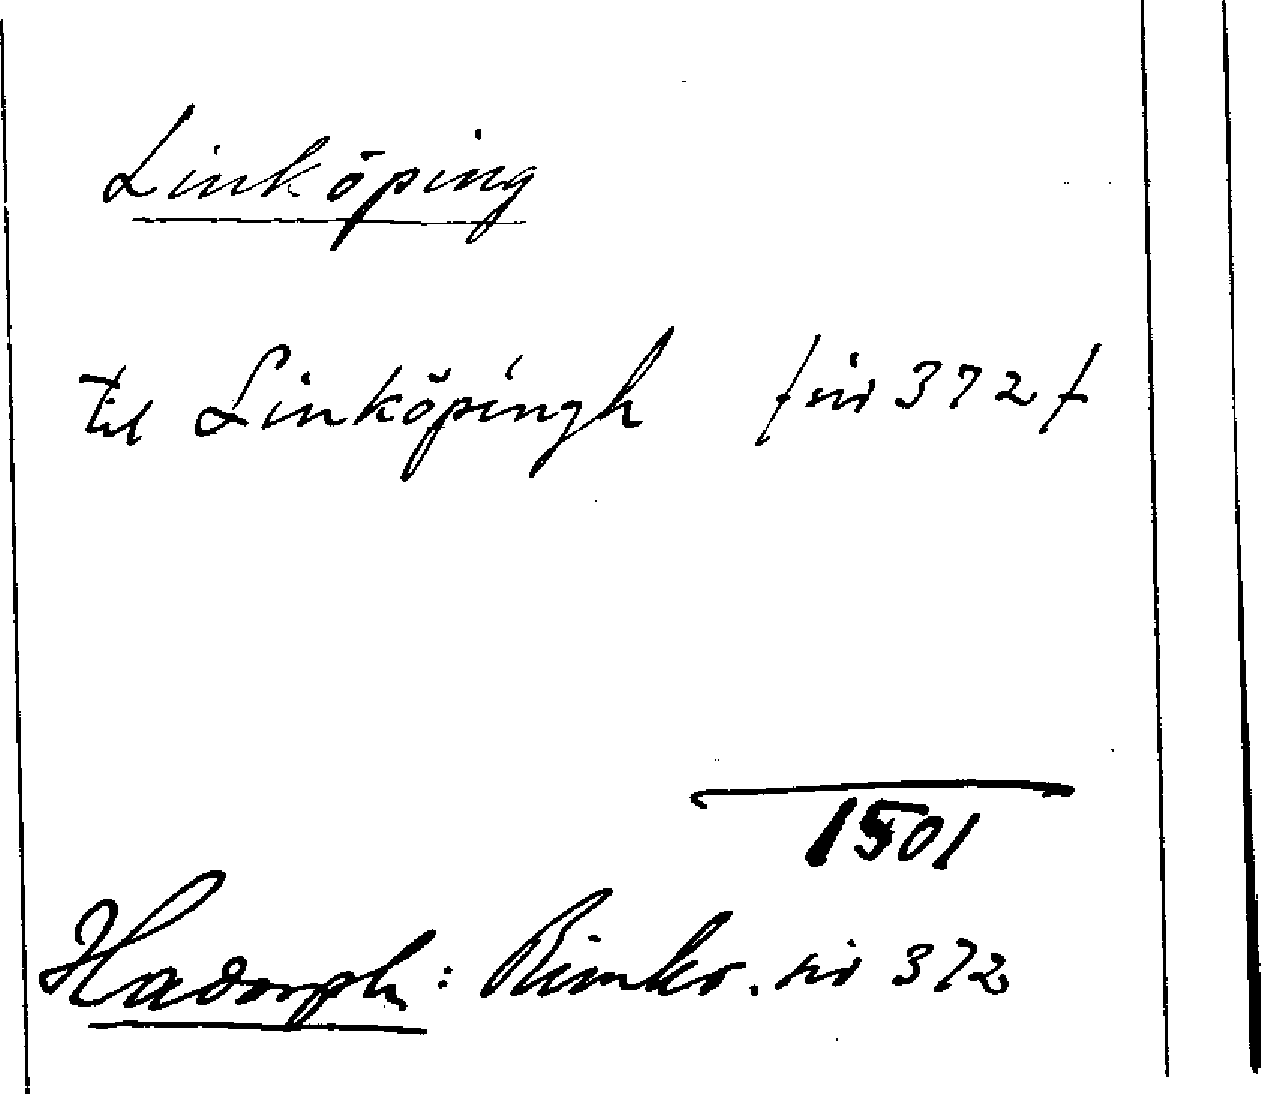 Linköping
til Linköpingh / sid 372 /
1501
Hadorph: Rimkr. sid 372